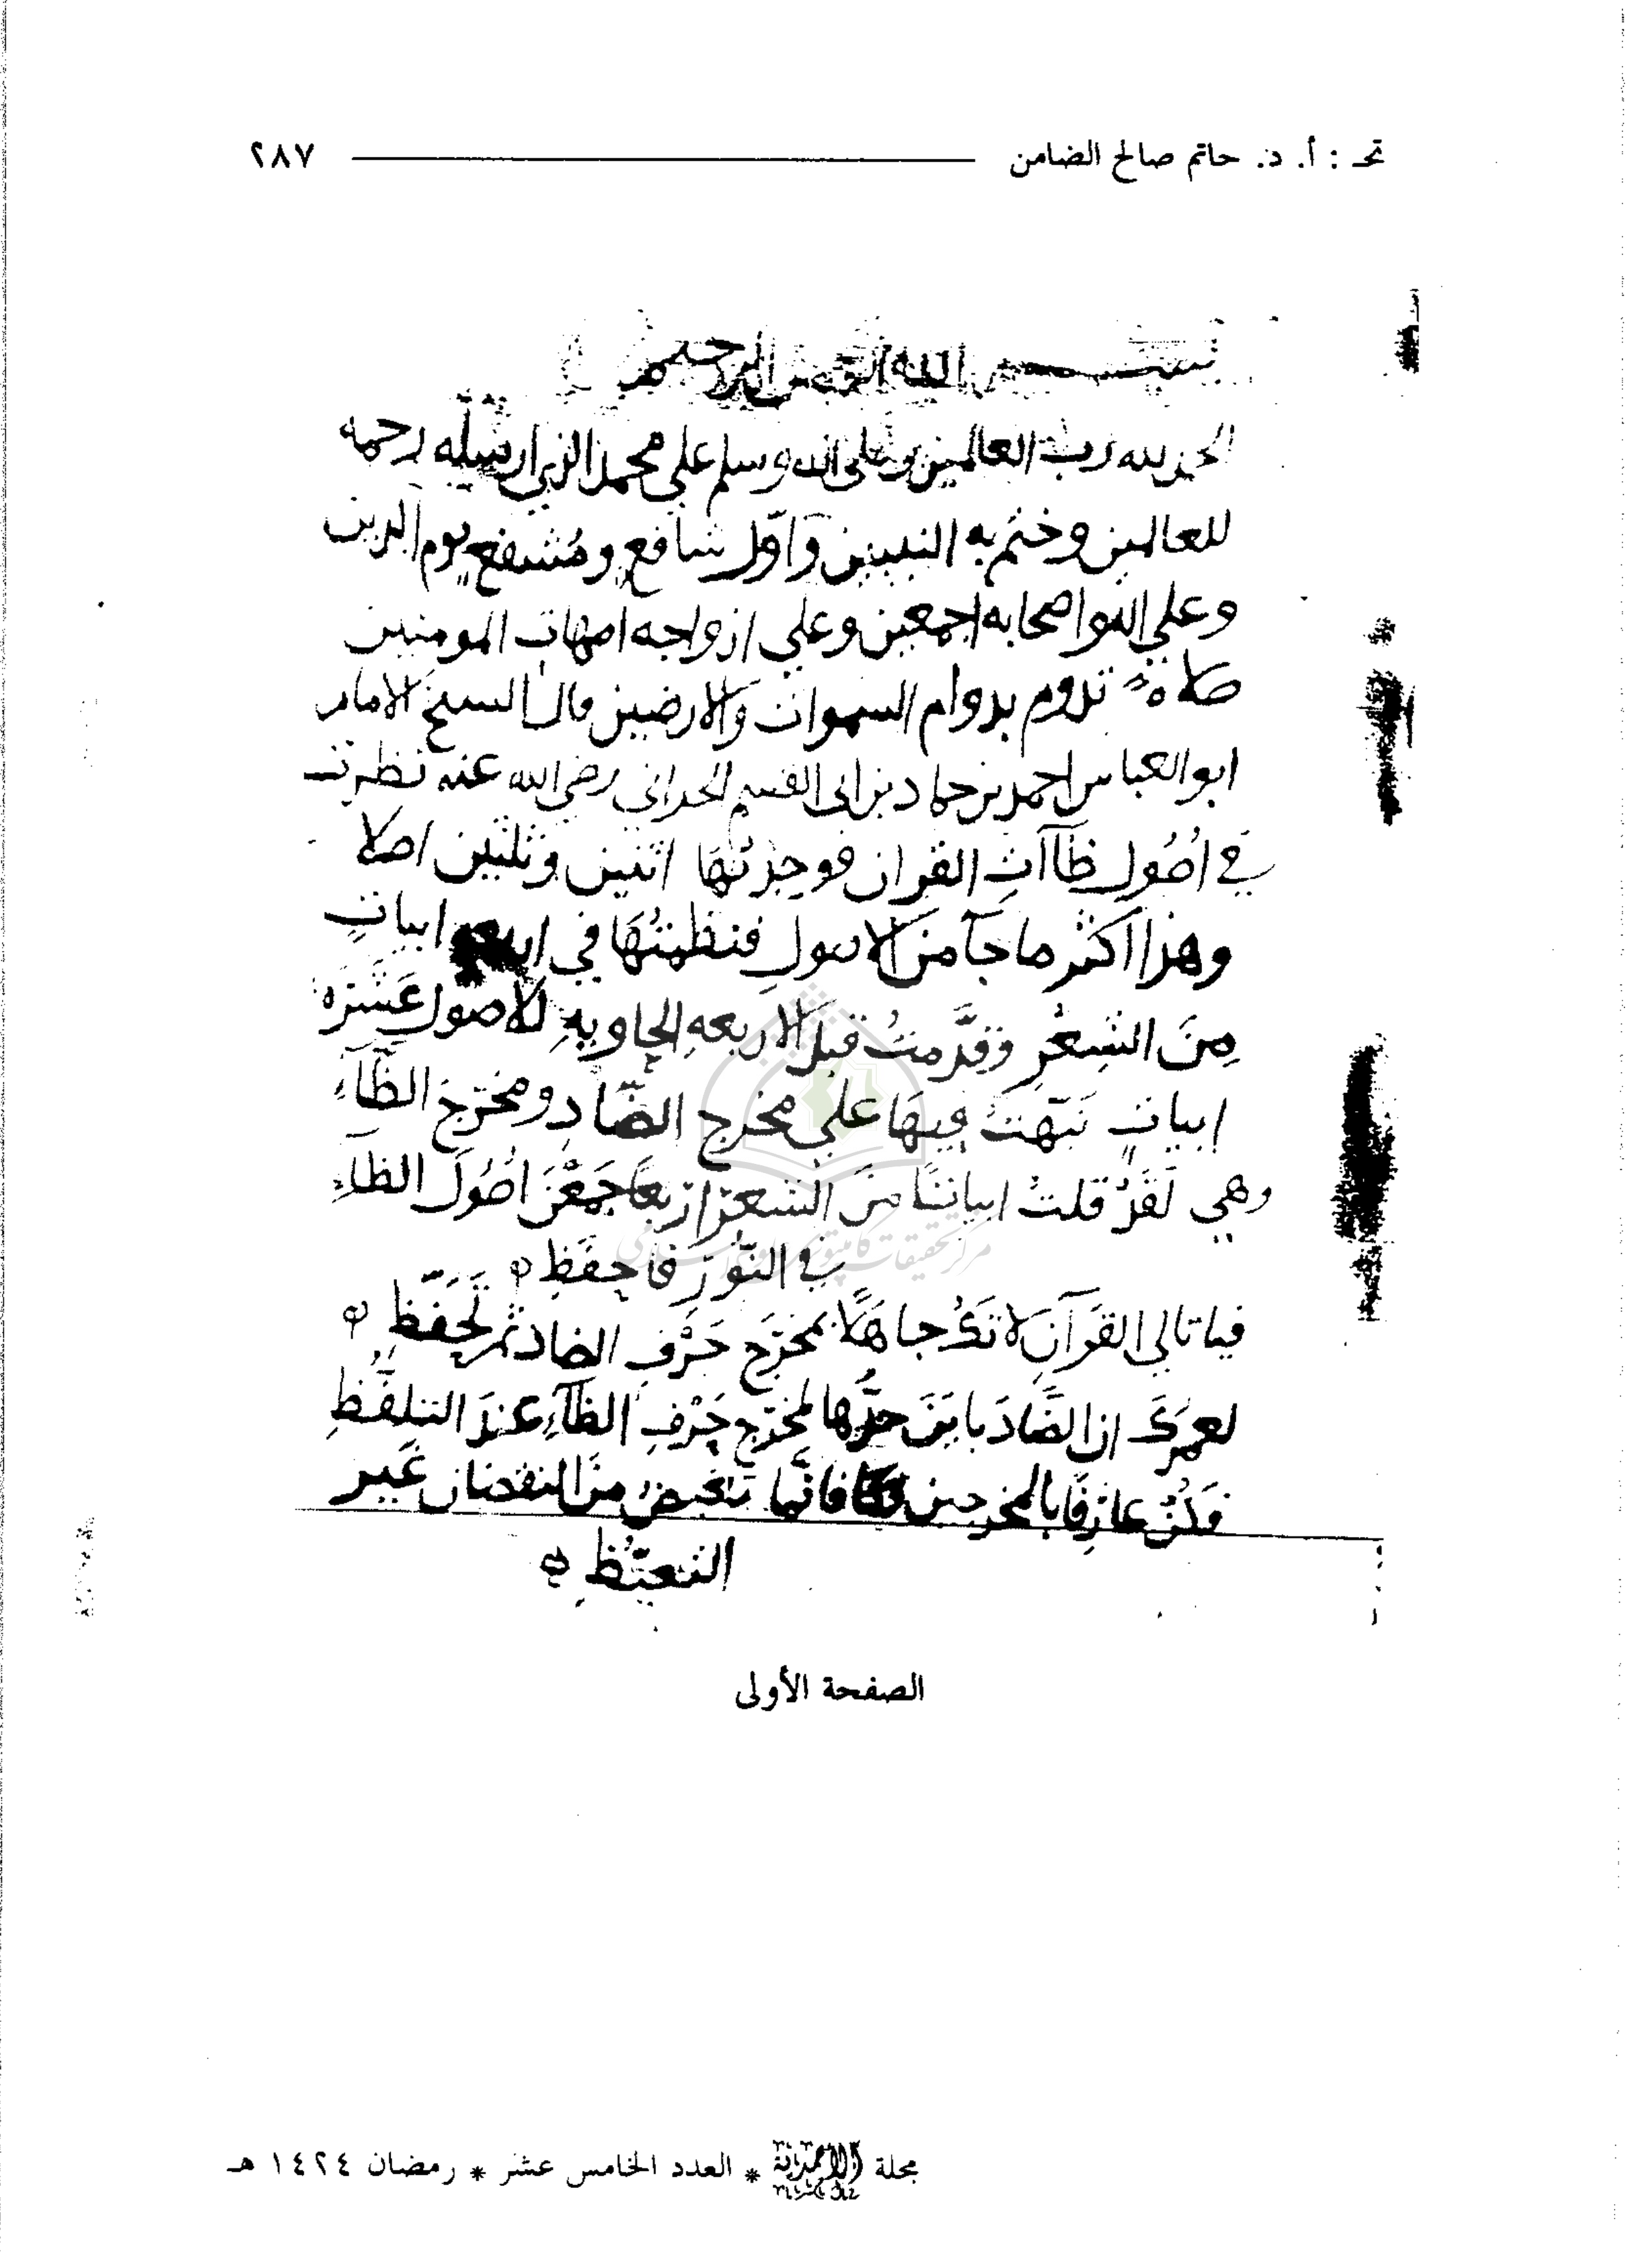 تحـ : أ. د. حاتم صالح الضامن ٢٨٧
بسم الله الرحمن الرحيم
الحمد لله رب العالمين وصلى الله وسلم علي محمد الذي ارسله رحمه
للعالمين وختم به النبيين وَاوّل شافع ومُشفع يوم الدين
وعلي اله واصحابه اجمعين وعلي ازواجه امهات المومنين
صلاة تدوم بدوام السموات وَالارضين قال الشيخ الامام
ابو العباس احمد بن حماد بن ابى القسم الحرانى رضي الله عنه نظرت
في اصُول ظآات القران فوجدتُهَا اثنين وثلثين اصلا
وهذا اكثر ما جآ من الاصول فنظمتُهَا في اربعه ابياتٍ
مِنَ الشِعْرِ وَقدَّمتُ قبل الاربعهِ الحاويهِ للاصول عَشَرَه
ابياتٍ نَبّهتُ فِيهَا علي مخرج الضّادِ ومخرَج الظّآءِ
وهي لَقَدْ قلتُ ابياتًا منَ الشعرِ ارْبعًا جَمَعْنَ اصُولَ الظآءِ
في النّوْرِ فاحفَظِ
فيا تالي القرَآنِ لا تَكُ جاهَلًا بمخرَج حَرْفِ الضاد ثم تَحَفّظ
لعمرَكَ ان الضَّادَ بايَنَ حدُّها لمخرَج حَرْفِ الظآءِ عندَ التلفُّظِ
فَكُنْ عارِفًا بالمخرجين فانّما تَغيضُ منَ النقصان غَير
التغيُّظِ
الصفحة الأولى
مجلة الأحمدية * العدد الخامس عشر * رمضان ١٤٢٤ هـ
مركز تحقيقات كامپيوتری علوم اسلامی